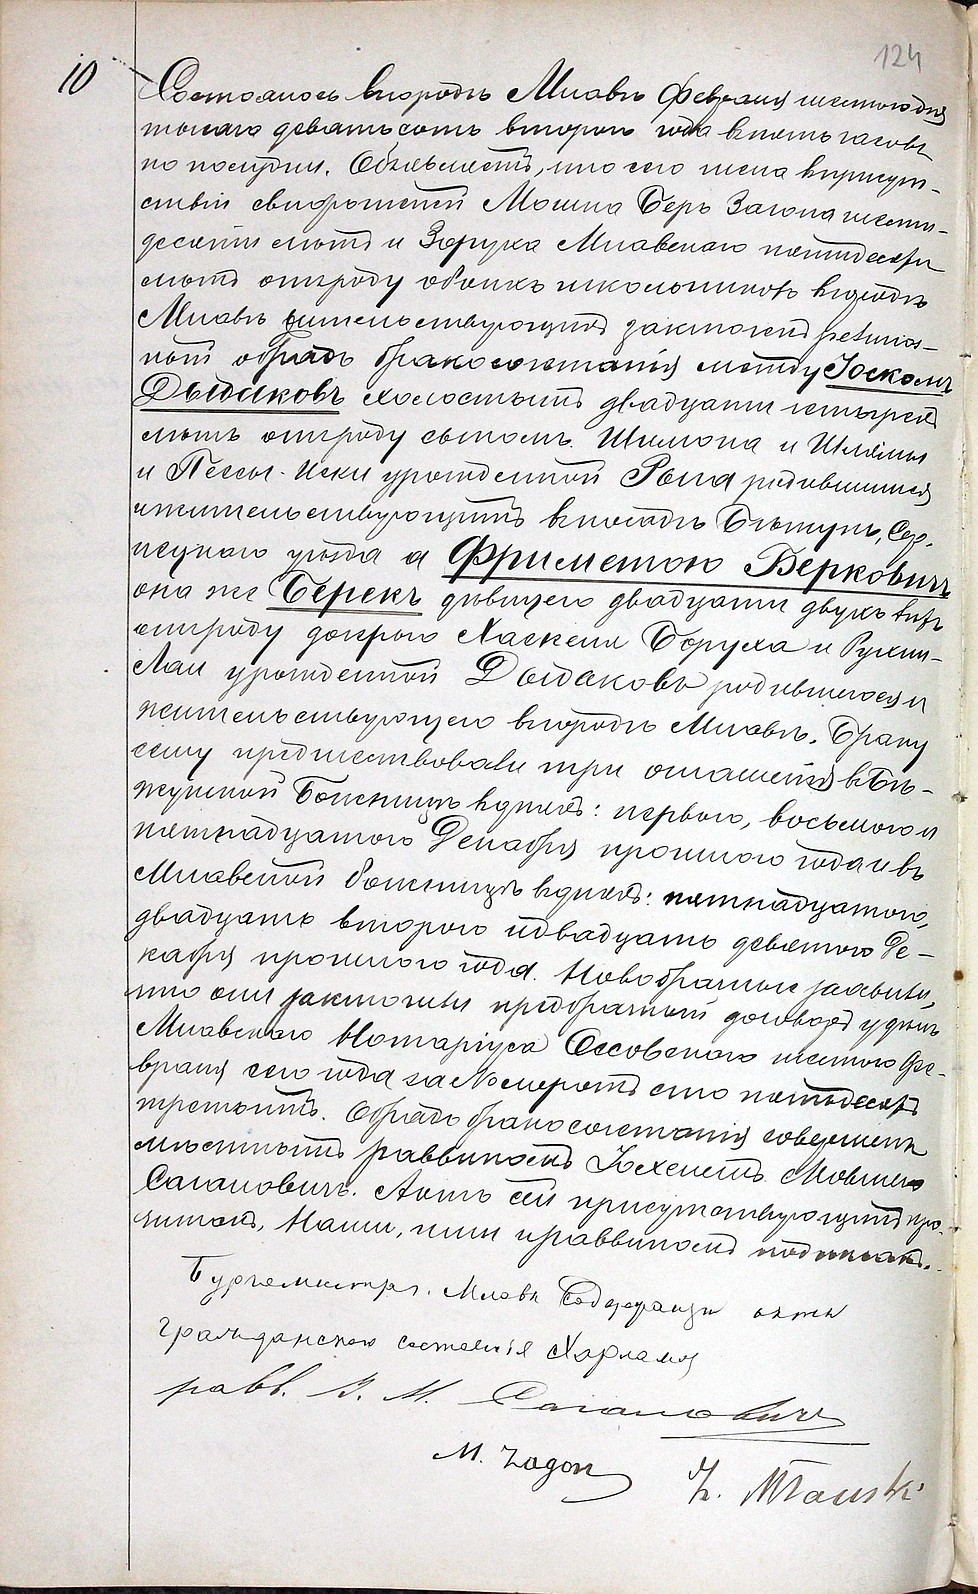 124
10 Состоялось в городѣ Млавѣ Февраля шестого дня
тысяча девятьсотъ второго года въ пять часовъ
по полудни. Объявляемъ, что сего числа въ присут-
ствіи свидѣтелей Мошка Беръ Загона шести-
десяти лѣтъ и Млавскаго пятидесяти
лѣтъ отъ роду обоихъ школьниковъ въ городѣ
Млавѣ жительствующихъ заключенъ религіоз-
ный обрядъ бракосочетанія между Іоскомъ
Дыдаковъ холостымъ двадцати четырехъ
лѣтъ отъ роду сыномъ Шимона и
и Пессы-Иски урожденной родившимся
и жительствующимъ въ посадѣ Бѣжунь, Сер-
пецкаго уѣзда а Фриметою Берковичъ
она же Берекъ дѣвицею двадцати двухъ лѣтъ
отъ роду дочерью Хаскеля Боруха и Рухли-
Лаи урожденной Дыдаковъ родившеюся и
жительствующею въ городѣ Млавѣ. Браку
сему предшествовали три оглашенія въ Бѣ-
жунской Божницѣ въ дняхъ: перваго, восьмого и
пятнадцатого Декабря прошлого года и въ
Млавской божницѣ въ дняхъ: пятнадцатого,
двадцать второго и двадцать девятого Де-
кабря прошлого года. Новобрачные заявили,
что они заключили предбрачный договоръ у
Млавского Нотаріуса Оссовского шестого Фе-
враля сего года за Номеромъ сто пятьдесятъ
третьимъ. Обрядъ бракосочетанія совершенъ
мѣстнымъ раввиномъ
Сагаловичъ. Актъ сей присутствующимъ про-
читанъ, Нами, ими и раввиномъ подписанъ.
Бургомистръ г. Млавы Содержащій акты
гражданского состоянія
равв. І. М. Сагаловичъ
M. Zagon Z. Mławski